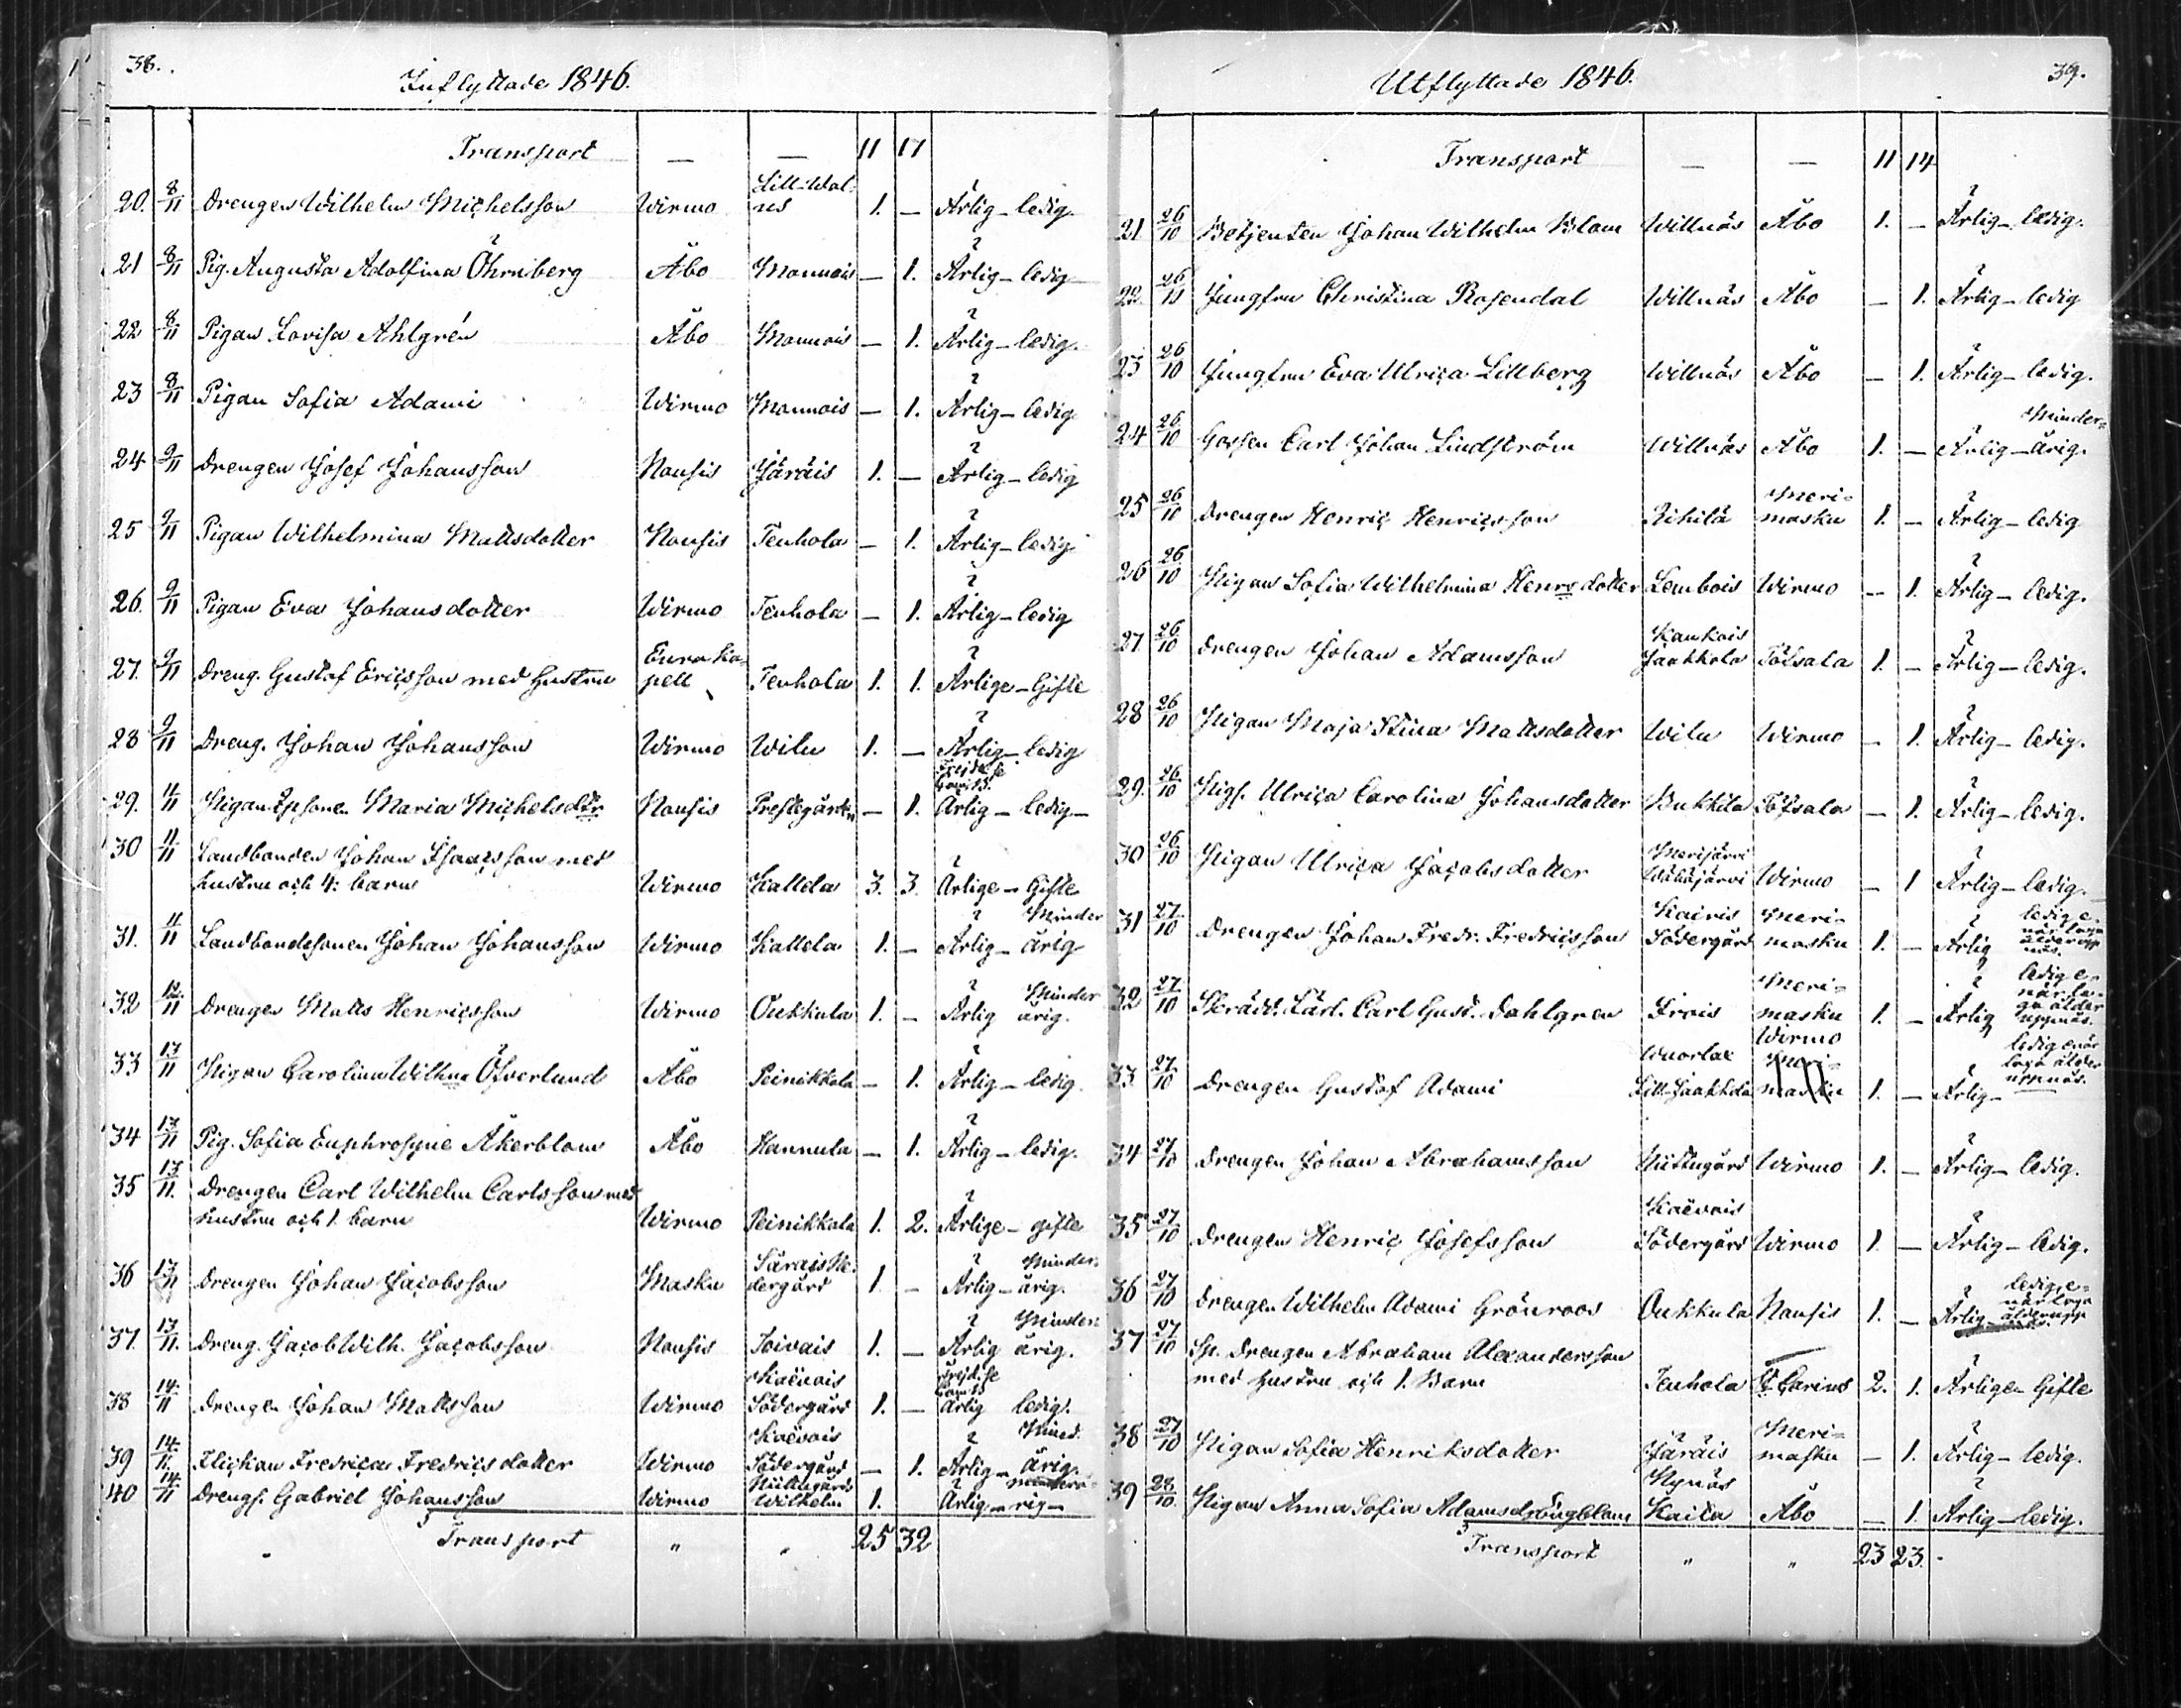 38.
Inflyttade 1846.
Transport — — 11 17
20. 8/11 Drengen Wilhelm Michelsson Wirmo Lill-Wal-
nes 1. — Ärlig - ledig.
21 8/11 Pig. Augusta Adolfina Öhrnberg Åbo Monnois — 1. Ärlig - ledig
22 8/11 Pigan Lovisa Ahlgrén Åbo Monnois — 1. Ärlig - ledig.
23 8/11 Pigan Sofia Adami Wirmo Monnois — 1. Ärlig - ledig
24 9/11 Drengen Josef Johansson Nousis Järäis 1. — Ärlig - ledig
25 9/11 Pigan Wilhelmina Mattsdotter Nousis Tenhola — 1. Ärlig - ledig
26. 9/11 Pigan Eva Johansdotter Wirmo Tenhola — 1. Ärlig - ledig
27. 9/11 Dreng. Gustaf Ericsson med hustru Eura Ka-
pell Tenhola 1. 1. Ärlige - Gifte
28 9/11 Dreng. Johan Johansson Wirmo Wilu 1. — Ärlig - ledig
29. 11/11 Pigan Maria Michelsdtr Nousis Prestgården — 1. Ärlig - ledig -
30 11/11 Landbonden Johan Isaacsson med
hustru och 4: barn Wirmo Kallela 3. 3. Ärlige - Gifte
31. 11/11 Landbondesonen Johan Johansson Wirmo Kallela 1. — Ärlig - Minder
årig
32 12/11 Drengen Matts Henricsson Wirmo Oukkula 1. — Ärlig Minder
årig.
33 13/11 Pigan Carolina Wilhna Öfverlund Åbo Peinikkala — 1. Ärlig - ledig.
34 13/11 Pig. Sofia Euphrosyne Åkerblom Åbo Hannula — 1. Ärlig - ledig.
35 13/11. Drengen Carl Wilhelm Carlsson med
hustru och 1. barn Wirmo Peinikkala 1. 2. Ärlige - gifte
36 13/11 Drengen Johan Jacobsson Masku Järäis Ne-
dergård 1 - Ärlig - Minder-
årig.
37. 13/11. Dreng. Jacob Wilh. Jacobsson Nousis Toivais 1. — Ärlig Minder-
årig.
38 14/11 Drengen Johan Mattsson Wirmo Kaëvais
Södergård 1. — ärlig ledig.
39 14/11. Flickan Fredrica Fredricsdotter Wirmo Kaëvais
Södergård — 1. Ärlig - Mind.
årig.
40 14/11 Drengs. Gabriel Johansson Wirmo Niittugård
Wilhelm 1. Ärlig - rig -
Transport " " 25 32
39.
Utflyttade 1846.
Transport — — 11 14
21 26/10 Betjenten Johan Wilhelm Blom Willnäs Åbo 1. — Ärlig - ledig.
22. 26/10 Jungfru Christina Rosendal Willnäs Åbo — 1. Ärlig - ledig
23 26/10 Jungfru Eva Ulrica Lillberg Willnäs Åbo — 1. Ärlig - ledig.
24 26/10 Gossen Carl Johan Lindström Willnäs Åbo 1. — Ärlig - Minder-
årig.
25 26/10 Drengen Henric Henricsson Rihilä Meri-
masku 1. — Ärlig - ledig
26 26/10 Pigan Sofia Wilhelmina Henrsdotter Lembois Wirmo — 1. Ärlig - ledig.
27. 26/10 Drengen Johan Adamsson Kaukois
Jaakkola Töfsala 1. — Ärlig - ledig.
28 26/10 Pigan Maja Stina Mattsdotter Wilu Wirmo — 1. Ärlig - ledig.
29. 26/10 Pigs. Ulrica Carolina Johansdotter Bukkila Töfsala — 1. Ärlig - ledig.
30 26/10 Pigan Ulrica Jacobsdotter Merijärvi
Wähäjärvi Wirmo — 1 Ärlig - ledig.
31 27/10 Drengen Johan Fredr. Fredricsson Kairis
Södergård Meri-
masku 1. — Ärlig ledig e-
när laga
ålder upp
nås.
32 27/10 Skrädd. Lärl. Carl Gust. Dahlgren Irois Meri-
masku 1. — Ärlig ledig e-
när la-
ga ålder
uppnås.
33. 27/10 Drengen Gustaf Adami Wuorlax
Lill-Jaakkola Wirmo
Meri-
masku 1. — Ärlig - ledig enär
laga ålder
uppnås.
34 27/10 Drengen Johan Abrahamsson Niittugård Wirmo 1. — Ärlig - ledig.
35 27/10 Drengen Henric Josefsson Kaëvais
Södergård Wirmo 1. — Ärlig - ledig.
36 27/10 Drengen Wilhelm Adami Grönroos Oukkula Nousis 1. — Ärlig - ledig, e-
när laga
ålder upp
37 27/10 Sp. Drengen Abraham Alexandersson
med hustru och 1. Barn Tenhola St. Carins 2. 1. Ärlige - Gifte
38 27/10 Pigan Sofia Henriksdotter Järäis Meri-
masku — 1. Ärlig - ledig.
39 28/10. Pigan Anna Sofia Adamsdr Ängblom Nynäs
Kaita Åbo — 1. Ärlig - ledig.
Transport " " 23 23.